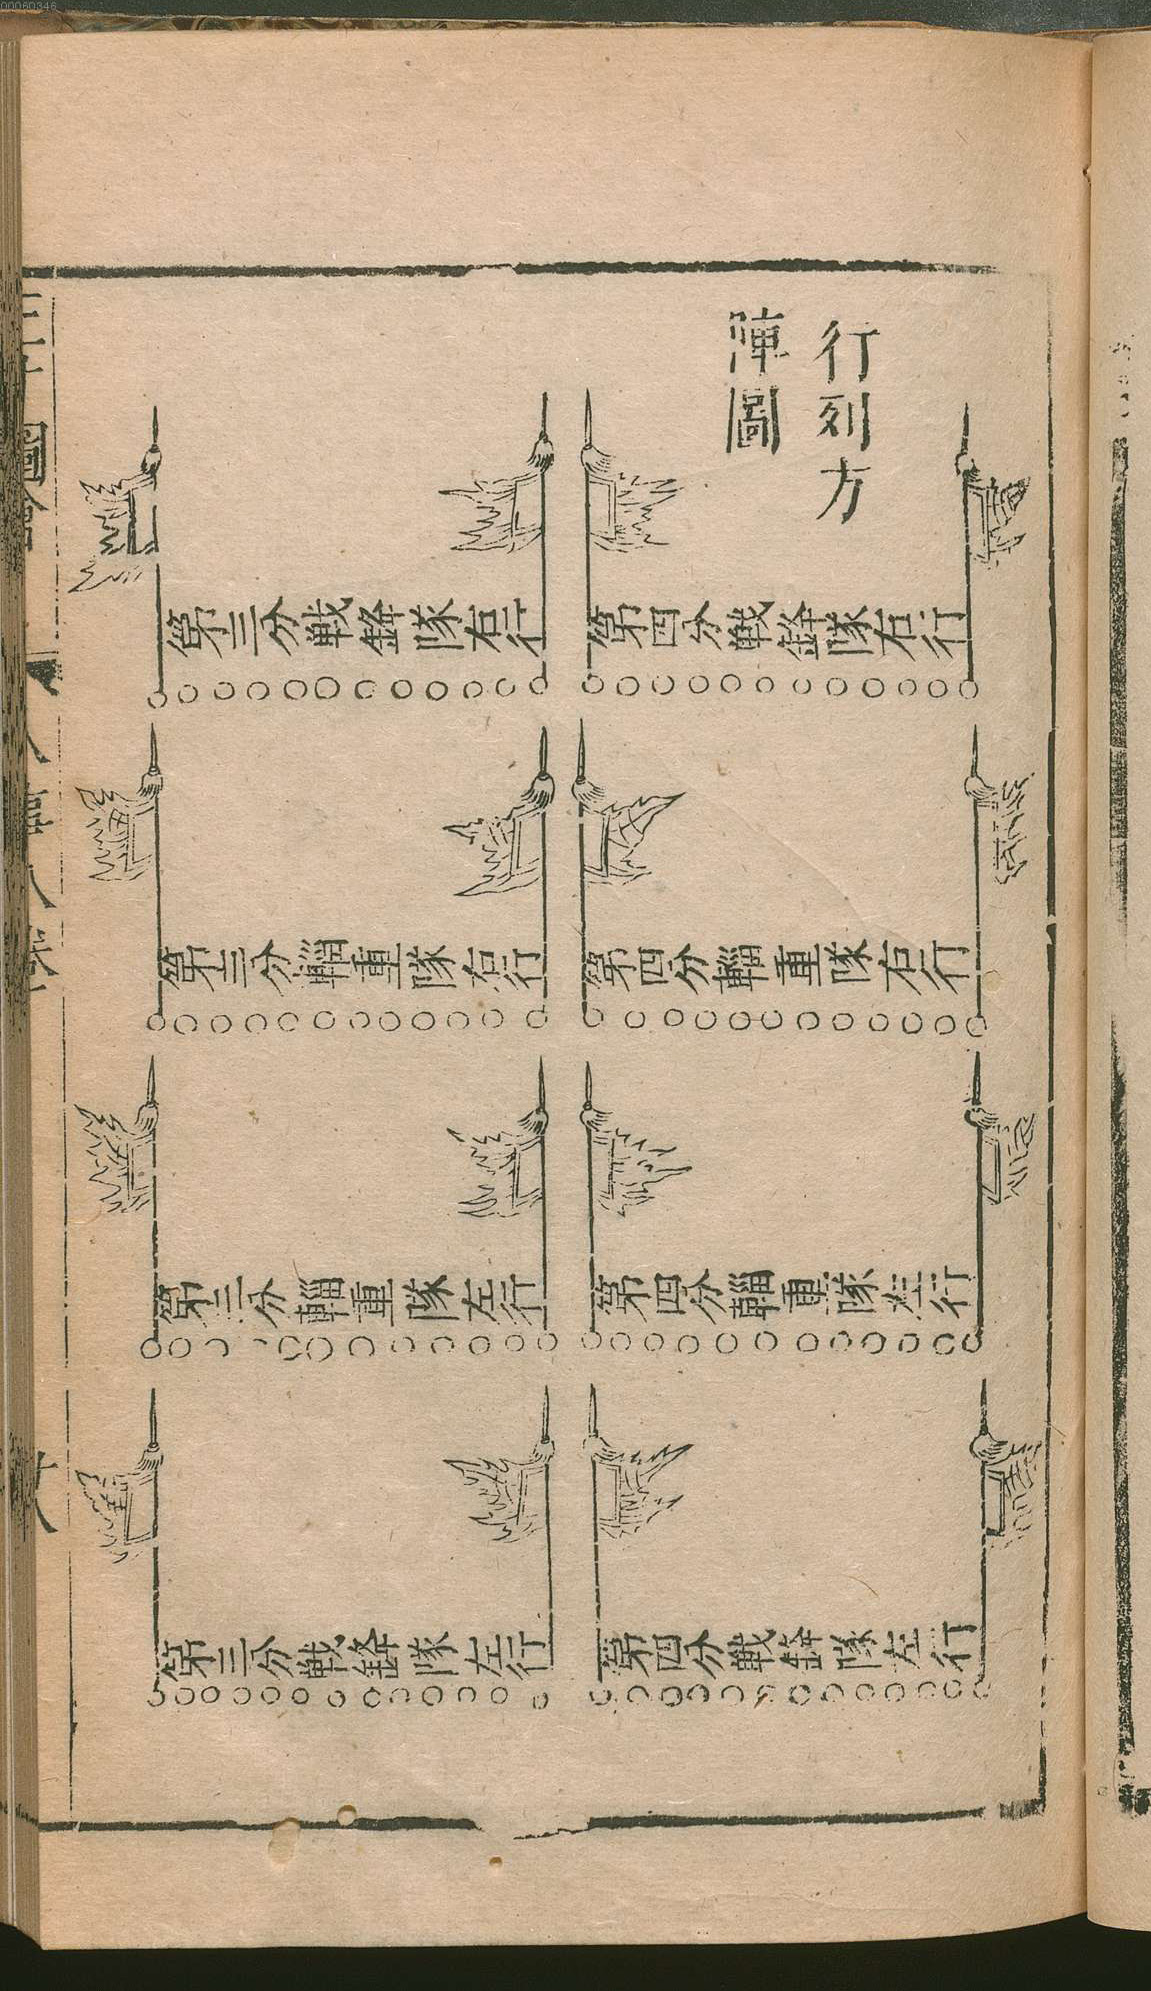 行列方
陣圖
第四分戰鋒隊右行
第三分戰鋒隊右行
第四分輜重隊右行
第三分輜重隊右行
第四分輜重隊左行
第三分輜重隊左行
第四分戰鋒隊左行
第三分戰鋒隊左行
00060346